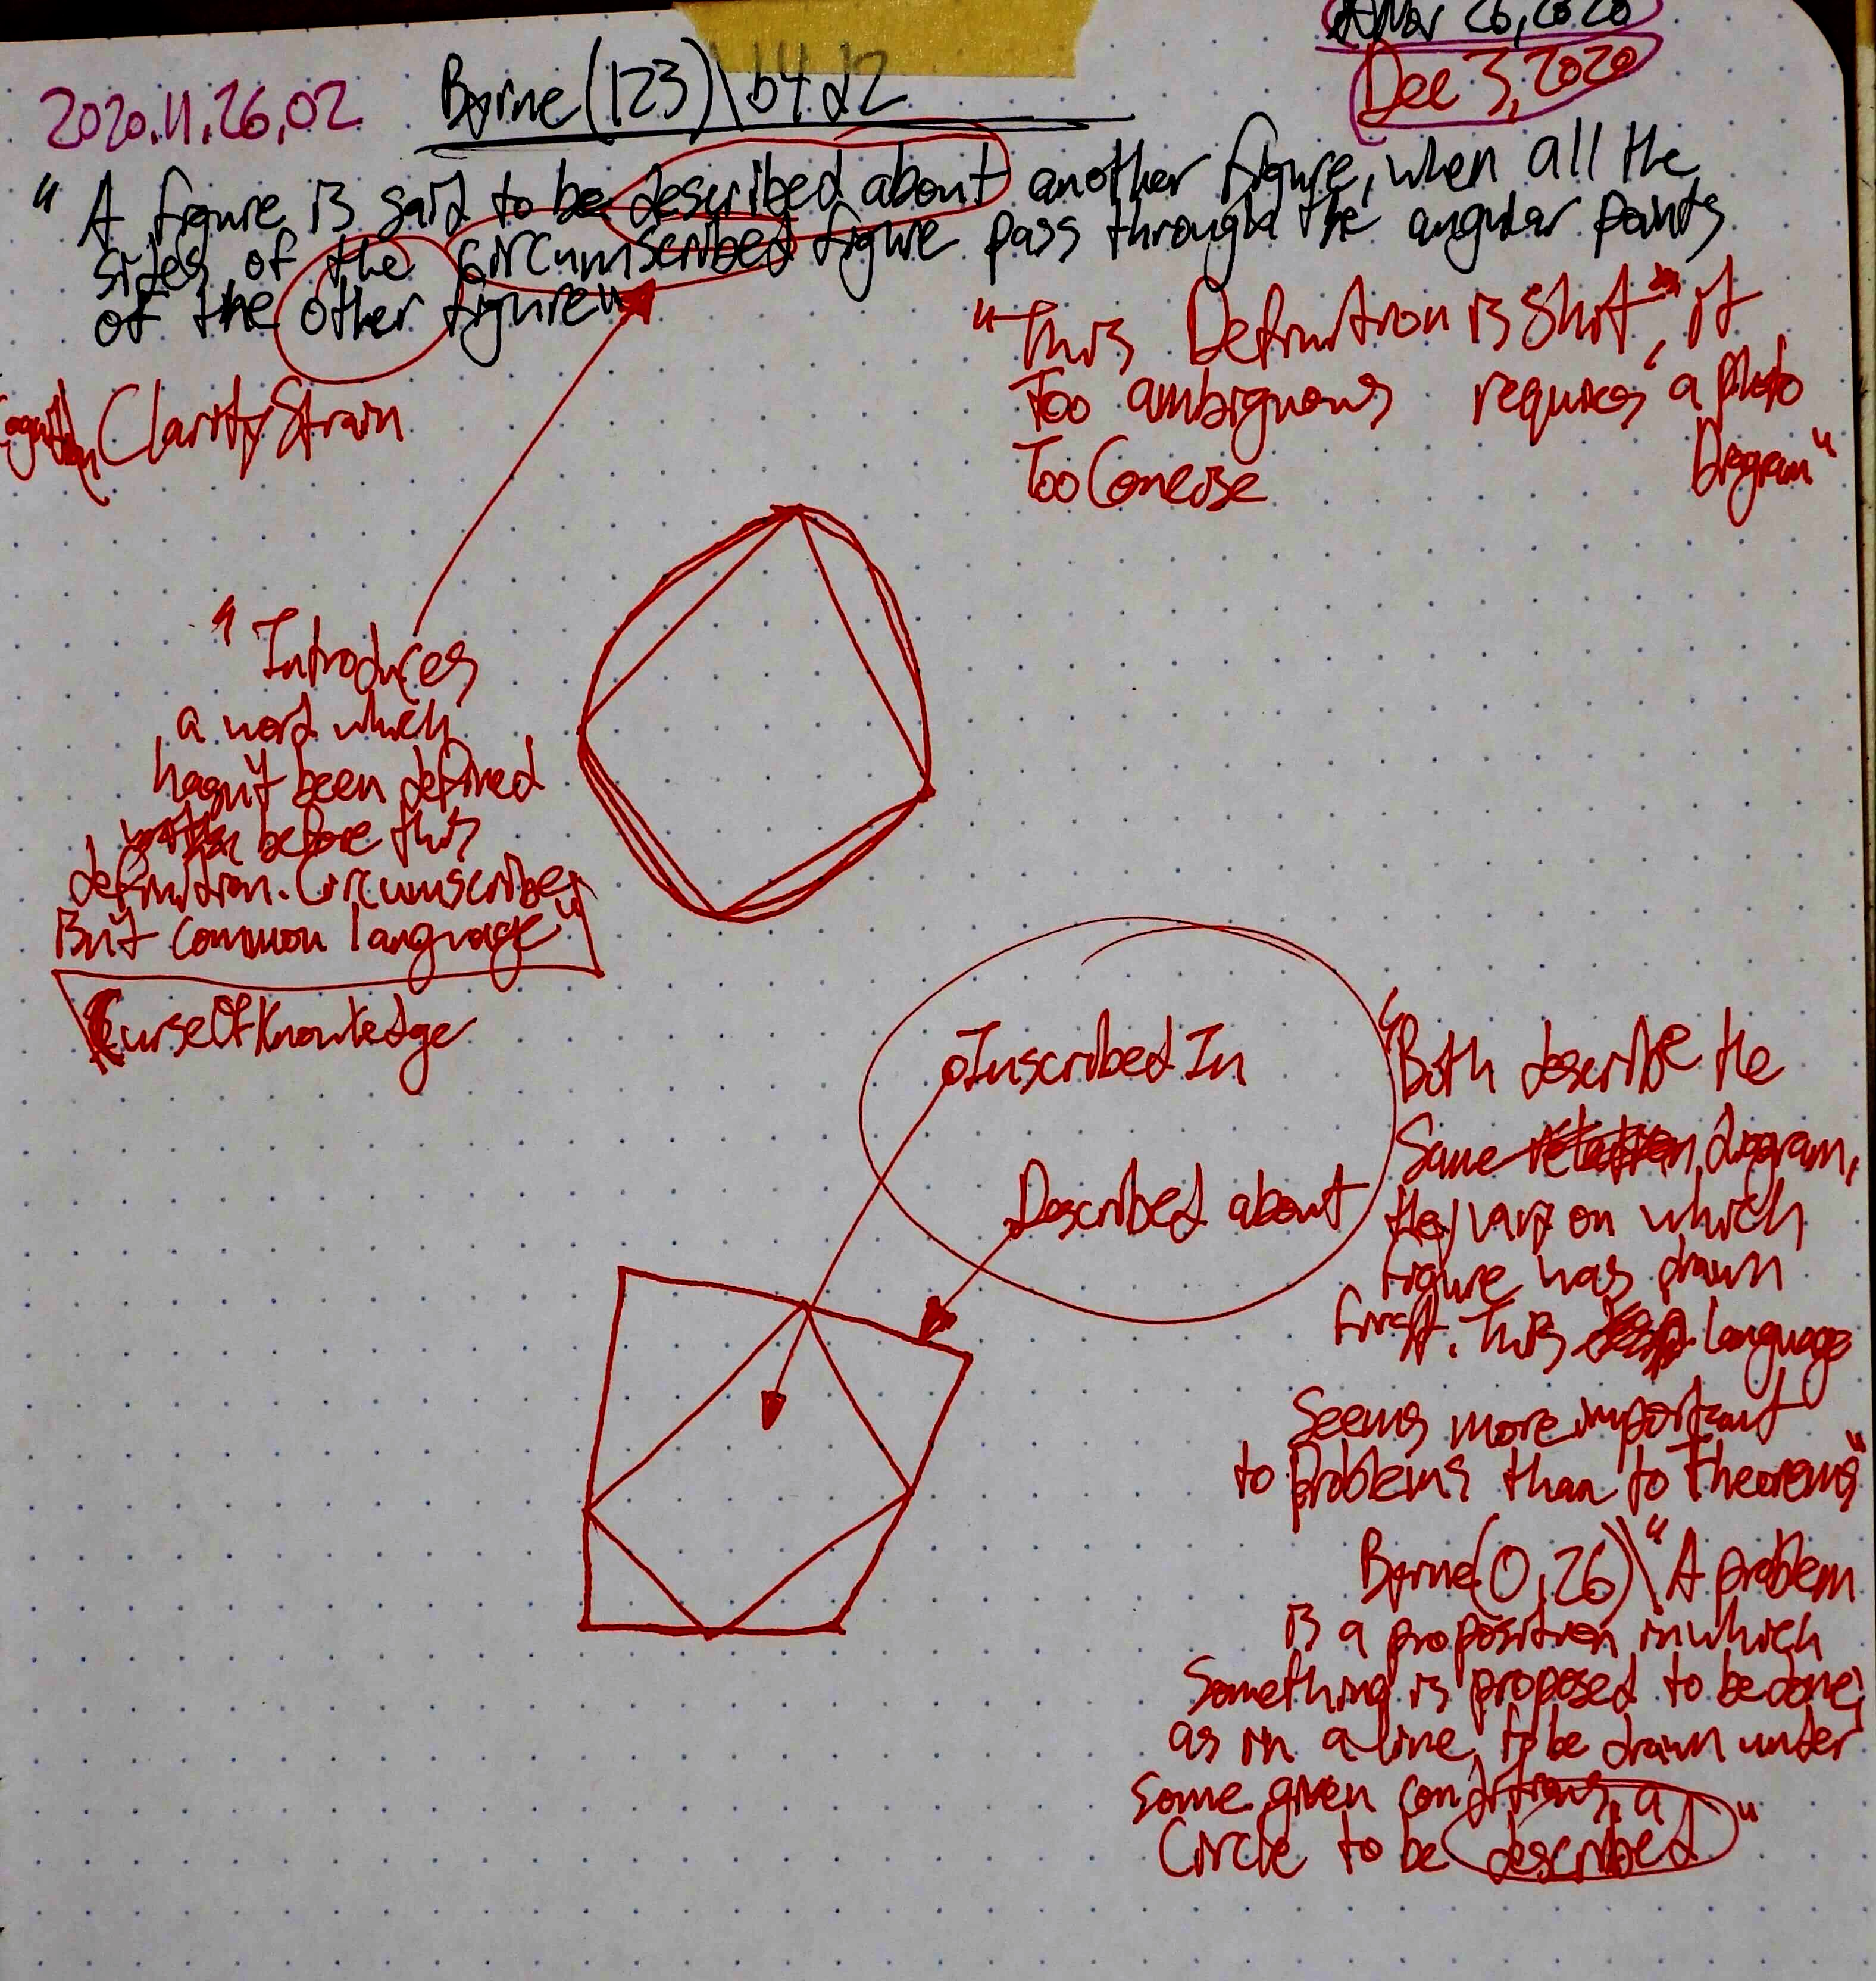 Nov 26, 2020
Dec 3, 2020
2020.11.26.02 Byrne(123)\b4.d2
"A figure is said to be described about another figure, when all the
sides of the circumscribed figure pass through the angular points
of the other figure"
"This Definition is Shit", it
Too ambiguous requires a photo
Too Concise Diagram"
ClarityStrain
"Introduces
a word which
hasn't been defined
before this
definition. Circumscribe,
But common language"
CurseOfKnowledge
Inscribed In
Described about
"Both describe the
Same diagram,
they vary on which
figure was drawn
first. This language
Seems more important
to Problems than to Theorems"
Byrne(0,26)\"A problem
is a proposition in which
Something is proposed to be done;
as in a line to be drawn under
some given conditions, a
Circle to be described"